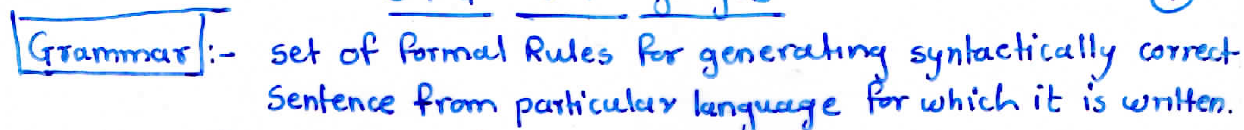 Grammar :- set of formal Rules for generating syntactically correct
Sentence from particular language for which it is written.